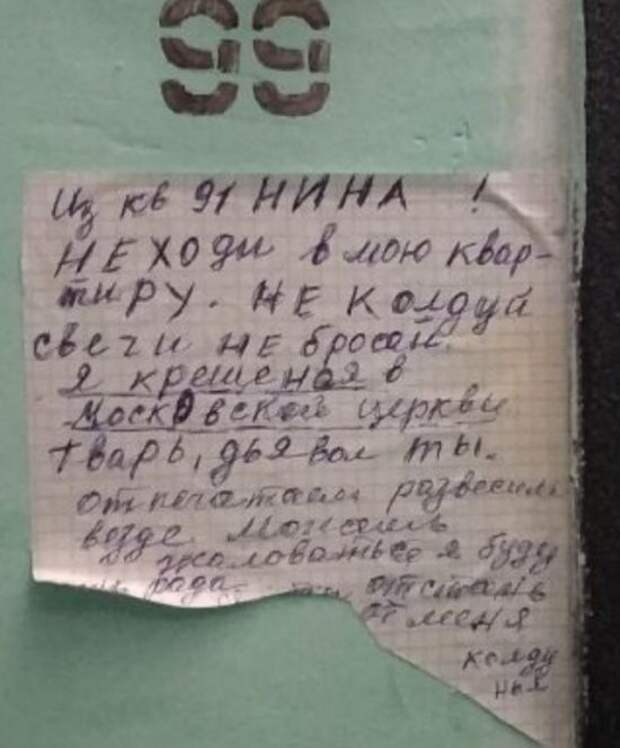 99
Из кв 91 НИНА !
НЕ ХОДИ в мою квар-
тиру. НЕ Колдуй
свечи не бросай.
Я крещеная в
Московской церкви
тварь, дьявол ты.
отпечатаем развесим
везде. Можешь
жаловаться я буду
рада отстань
от меня
колду
нья